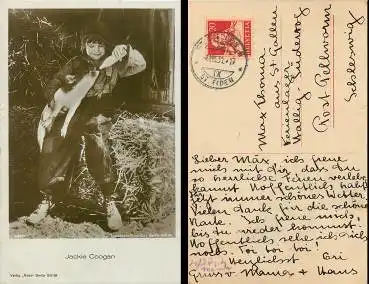 Jackie Coogan
Verlag „Ross“ Berlin SW 68
HELVETIA
IX
ST. FIDEN
Max
aus St. Gallen
Ferienlager
Hallig-Süderoog
Post Pellworm
Schleswig
Lieber Max, ich freue
mich mit dir, dass du
so herrliche Ferien verleben
kannst. Hoffentlich habt
jetzt immer schönes Wetter.
Vielen dank für die schöne
Karte. Ich freue mich,
bis du wieder kommst.
Hoffentlich sehe ich dich
noch.
Herzlichst
Gruss v. Mama + Hans